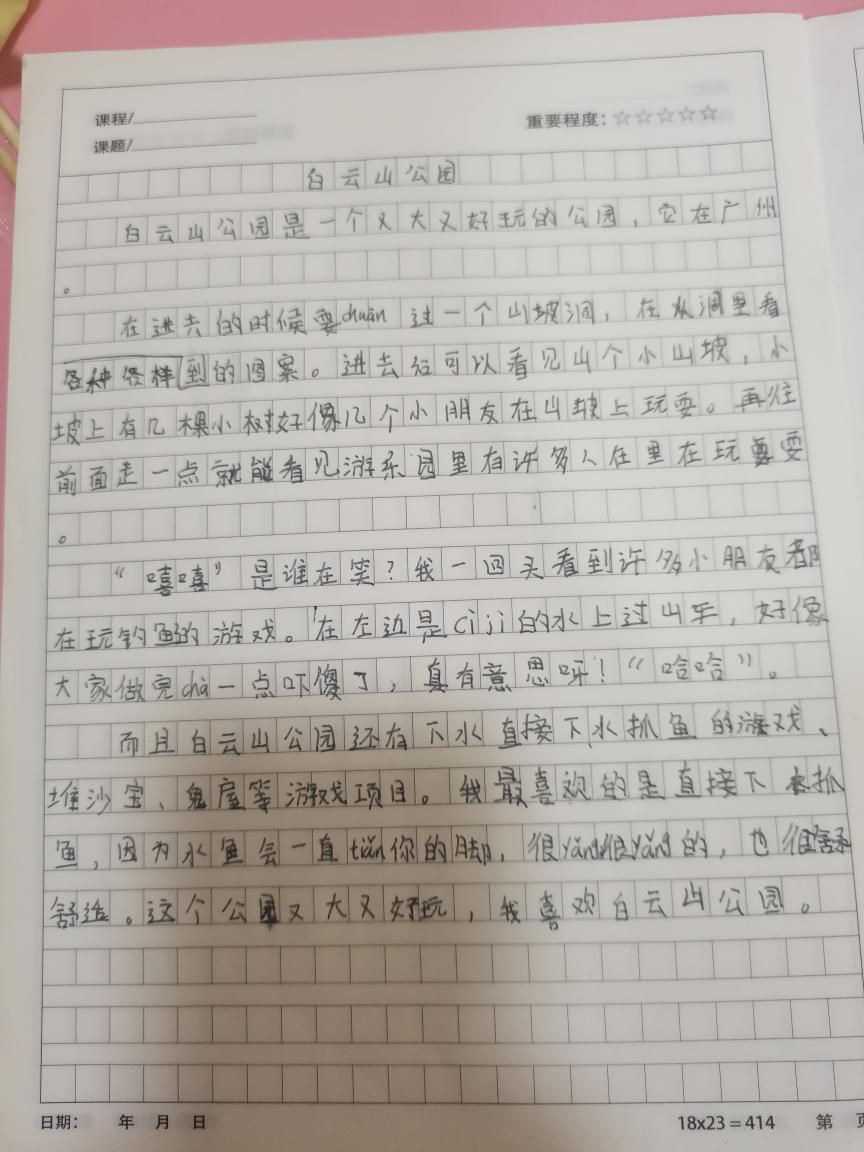 课程/
重要程度：☆☆☆☆☆
课题/
白云山公园
白云山公园是一个又大又好玩的公园，它在广州
。
在进去的时候要chuān过一个山坡洞，在从洞里看
各种各样到的图案。进去后可以看见山个小山坡，小
坡上有几棵小树好像几个小朋友在山坡上玩耍。再往
前面走一点就能看见游乐园里有许多人在里在玩耍
。
“嘻嘻”是谁在笑？我一回头看到许多小朋友都
在玩钓鱼的游戏。在左边是cìjī的水上过山车，好像
大家做完chà一点吓傻了，真有意思呀！“哈哈”。
而且白云山公园还有下水直接下水抓鱼的游戏、
堆沙宝、鬼屋等游戏项目。我最喜欢的是直接下水抓
鱼，因为水鱼会一直tiǎn你的脚，很yǎng很yǎng的，也很
舒适。这个公园又大又好玩，我喜欢白云山公园。
日期： 年 月 日
18x23=414 第 页